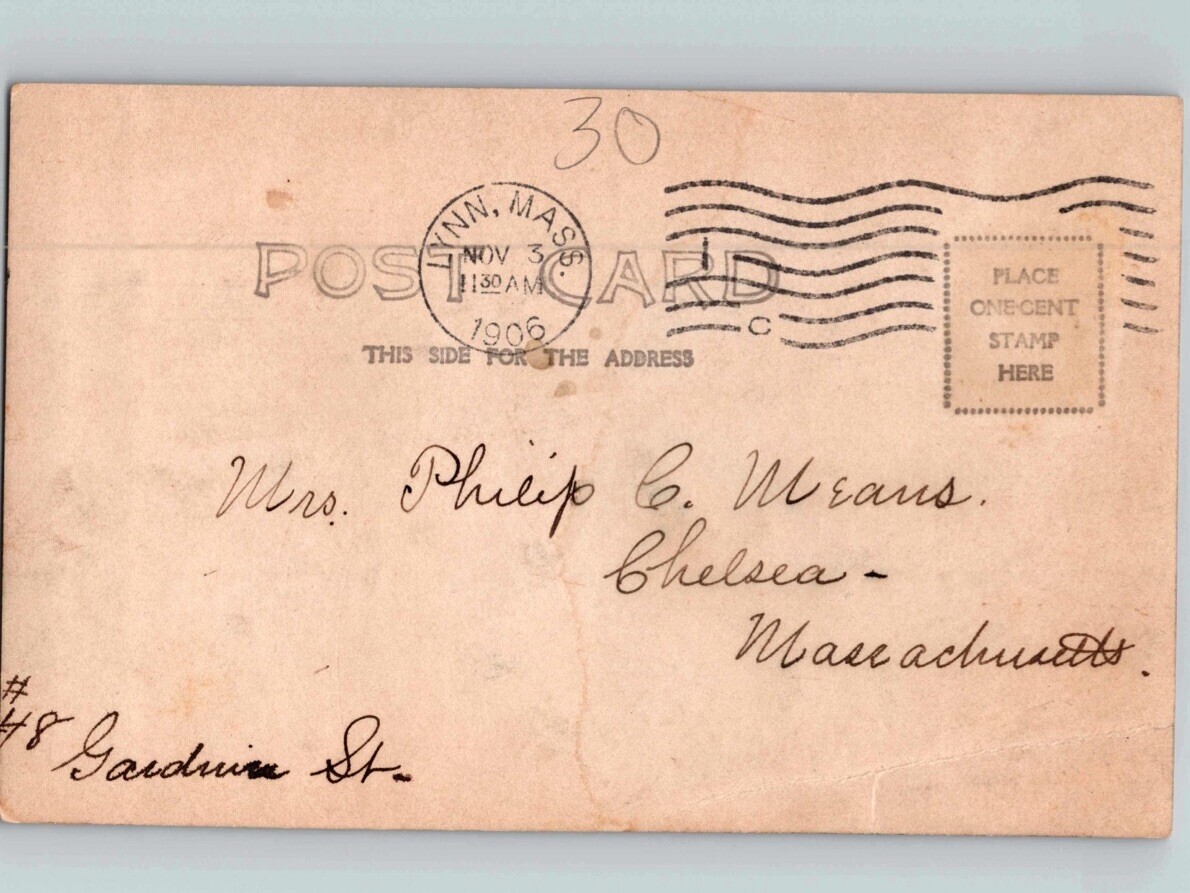 30
LYNN, MASS.
NOV 3
11 30 AM
1906
1
C
POST CARD
THIS SIDE FOR THE ADDRESS
PLACE
ONE-CENT
STAMP
HERE
Mrs. Philip C. Means.
Chelsea -
Massachusetts.
#
48 St.